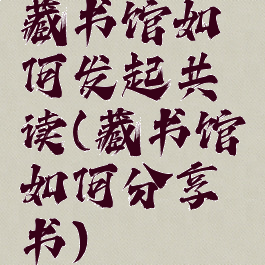 藏书馆如
何发起共
读(藏书馆
如何分享
书)